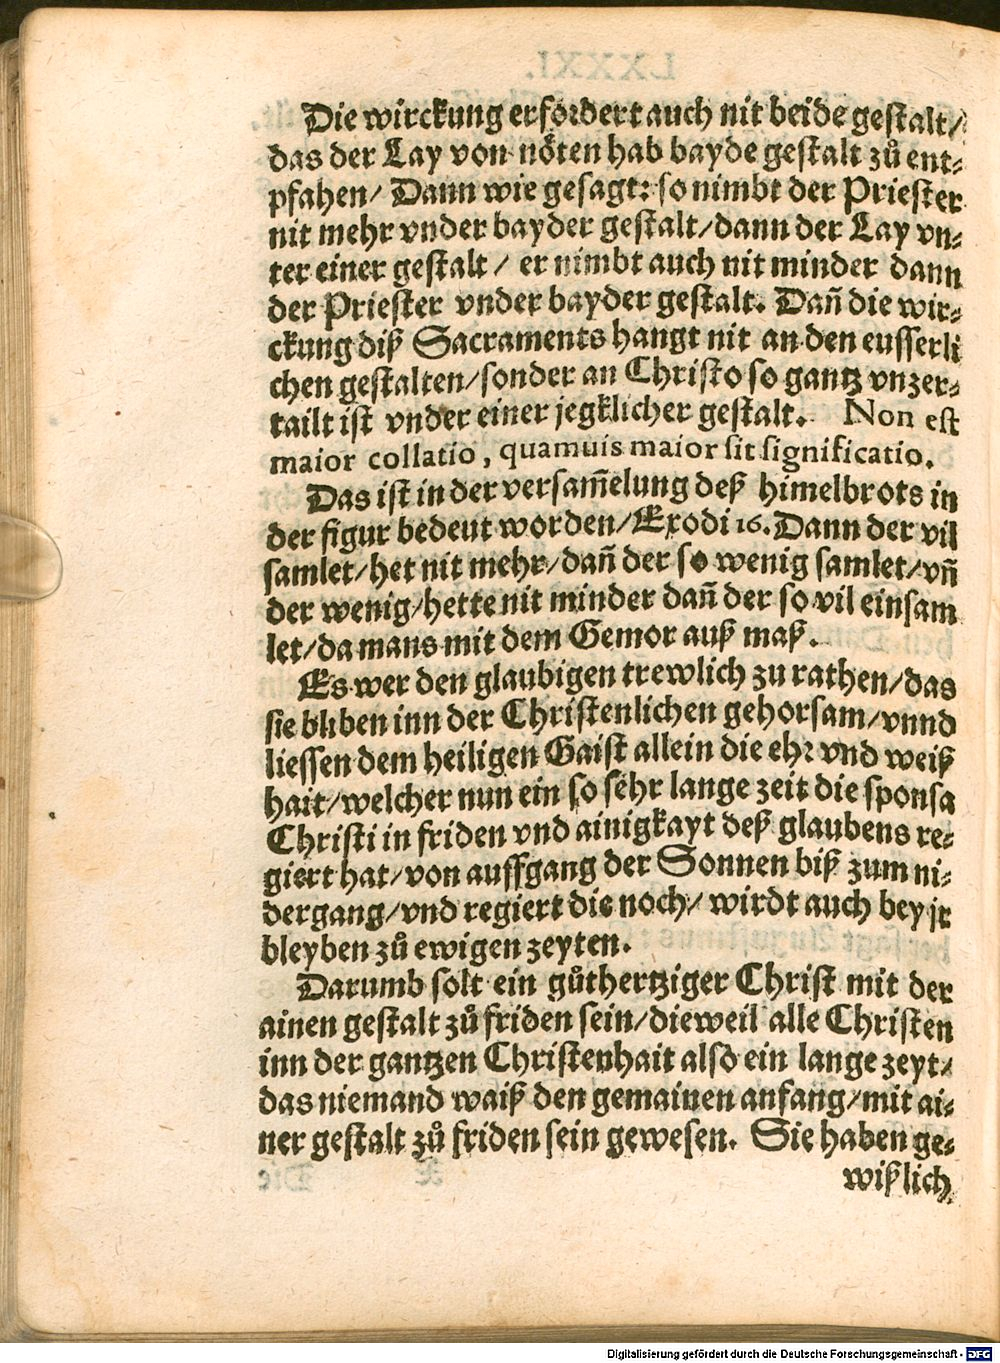 Die wirckung erfordert auch nit beide gestalt/
das der Lay von nöten hab bayde gestalt zů ent-
pfahen/ Dann wie gesagt: so nimbt der Priester
nit mehr vnder bayder gestalt/dann der Lay vn-
ter einer gestalt/ er nimbt auch nit minder dann
der Priester vnder bayder gestalt. Dañ die wir-
ckung diß Sacraments hangt nit an den eusserli
chen gestalten/sonder an Christo so gantz vnzer-
tailt ist vnder einer jegklicher gestalt. Non est
maior collatio, quamuis maior sit significatio.
Das ist in der versam̃elung deß himelbrots in
der figur bedeut worden/Exodi 16. Dann der vil
samlet/het nit mehr/dañ der so wenig samlet/vñ
der wenig/hette nit minder dañ der so vil einsam
let/da mans mit dem Gemor auß maß.
Es wer den glaubigen trewlich zu rathen/das
sie bliben inn der Christenlichen gehorsam/vnnd
liessen dem heiligen Gaist allein die ehr vnd weiß
hait/welcher nun ein so sehr lange zeit die sponsa
Christi in friden vnd ainigkayt deß glaubens re-
giert hat/von auffgang der Sonnen biß zum ni-
dergang/vnd regiert die noch/ wirdt auch bey jr
bleyben zů ewigen zeyten.
Darumb solt ein gůthertziger Christ mit der
ainen gestalt zů friden sein/dieweil alle Christen
inn der gantzen Christenhait also ein lange zeyt/
das niemand waiß den gemainen anfang/mit ai-
ner gestalt zů friden sein gewesen. Sie haben ge-
wißlich
Digitalisierung gefördert durch die Deutsche Forschungsgemeinschaft - DFG